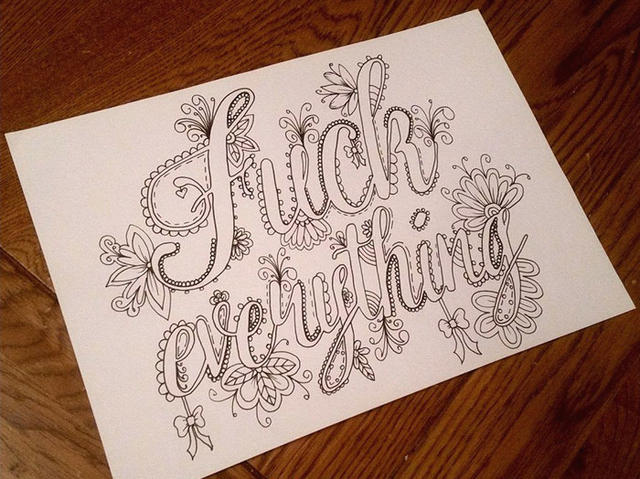 Fuck
everything